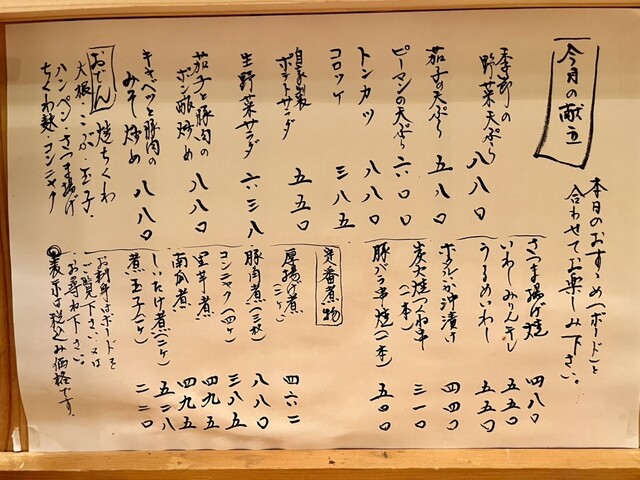 今月の献立
本日のおすすめ(ボード)と
合わせてお楽しみ下さい。
季節の
野菜天ぷら 八八〇
茄子の天ぷら 五八〇
ピーマンの天ぷら 六〇〇
トンカツ 八八〇
コロッケ 三八五
自家製
ポテトサラダ 五五〇
生野菜サラダ 六三八
茄子と豚肉の
ポン酢炒め 八八〇
キャベツと豚肉の
みそ炒め 八八〇
おでん 焼ちくわ
大根・こぶ・玉子・
ハンペン・さつま揚げ
ちくわ麩・コンニャク
さつま揚げ焼 四八〇
いわしみりん干し 五五〇
うるめいわし 五五〇
ホタルイカ沖漬け 四四〇
炭火焼つくね串
(一本) 三一〇
豚バラ串焼(一本) 五〇〇
定番煮物
厚揚げ煮
(二ヶ) 四六二
豚肉煮(三枚) 八八〇
コンニャク(四ヶ) 三八五
里芋煮 四九五
南瓜煮 四九五
しいたけ煮(三ヶ) 五二八
煮玉子(一ヶ) 二二〇
お刺身はボードを
ご覧下さい。又は
お尋ね下さい。
◎表示は税込み価格です。